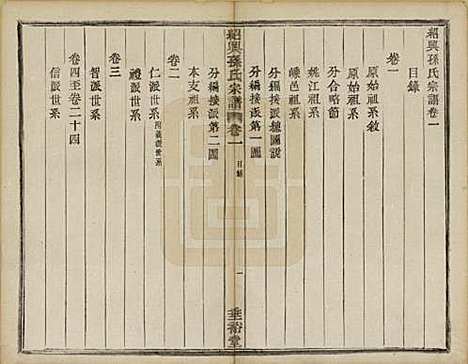 紹興孫氏宗譜卷一
目錄
卷一
原始祖系敘
原始祖系
分合略箇
姚江祖系
嵊邑祖系
分編接派總圖說
分編接派第一圖
紹興孫氏宗譜 卷一 目錄 一 垂裕堂
分編接派第二圖
本支祖系
卷二
仁派世系
禮派世系
卷三
智派世系
卷四至卷二十四
信派世系